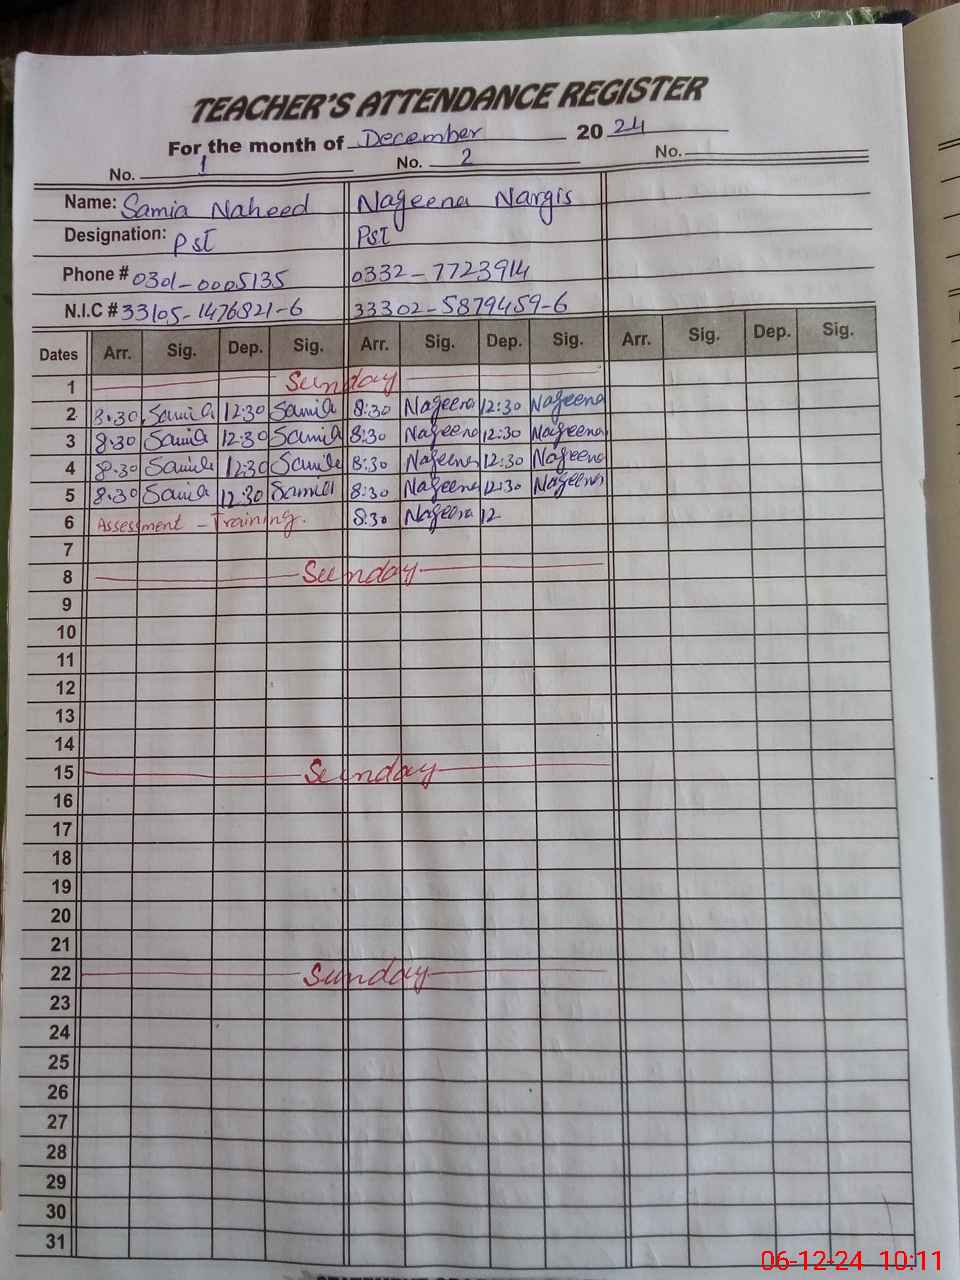 TEACHER'S ATTENDANCE REGISTER
For the month of December 2024
No. 1 No. 2 No.
Name: Samia Naheed Nageena Nargis
Designation: PST PST
Phone # 0301-0005135 0332-7723914
N.I.C # 33105-1476821-6 33302-5879459-6
Dates Arr. Sig. Dep. Sig. Arr. Sig. Dep. Sig. Arr. Sig. Dep. Sig.
1 Sunday
2 8.30 Samia 12:30 Samia 8:30 Nageena 12:30 Nageena
3 8.30 Samia 12.30 Samia 8:30 Nageena 12:30 Nageena
4 8.30 Samia 12.30 Samia 8:30 Nageena 12:30 Nageena
5 8.30 Samia 12.30 Samia 8:30 Nageena 12:30 Nageena
6 Assessment - Training. 8:30 Nageena 12
7
8 Sunday
9
10
11
12
13
14
15 Sunday
16
17
18
19
20
21
22 Sunday
23
24
25
26
27
28
29
30
31
06-12-24 10:11